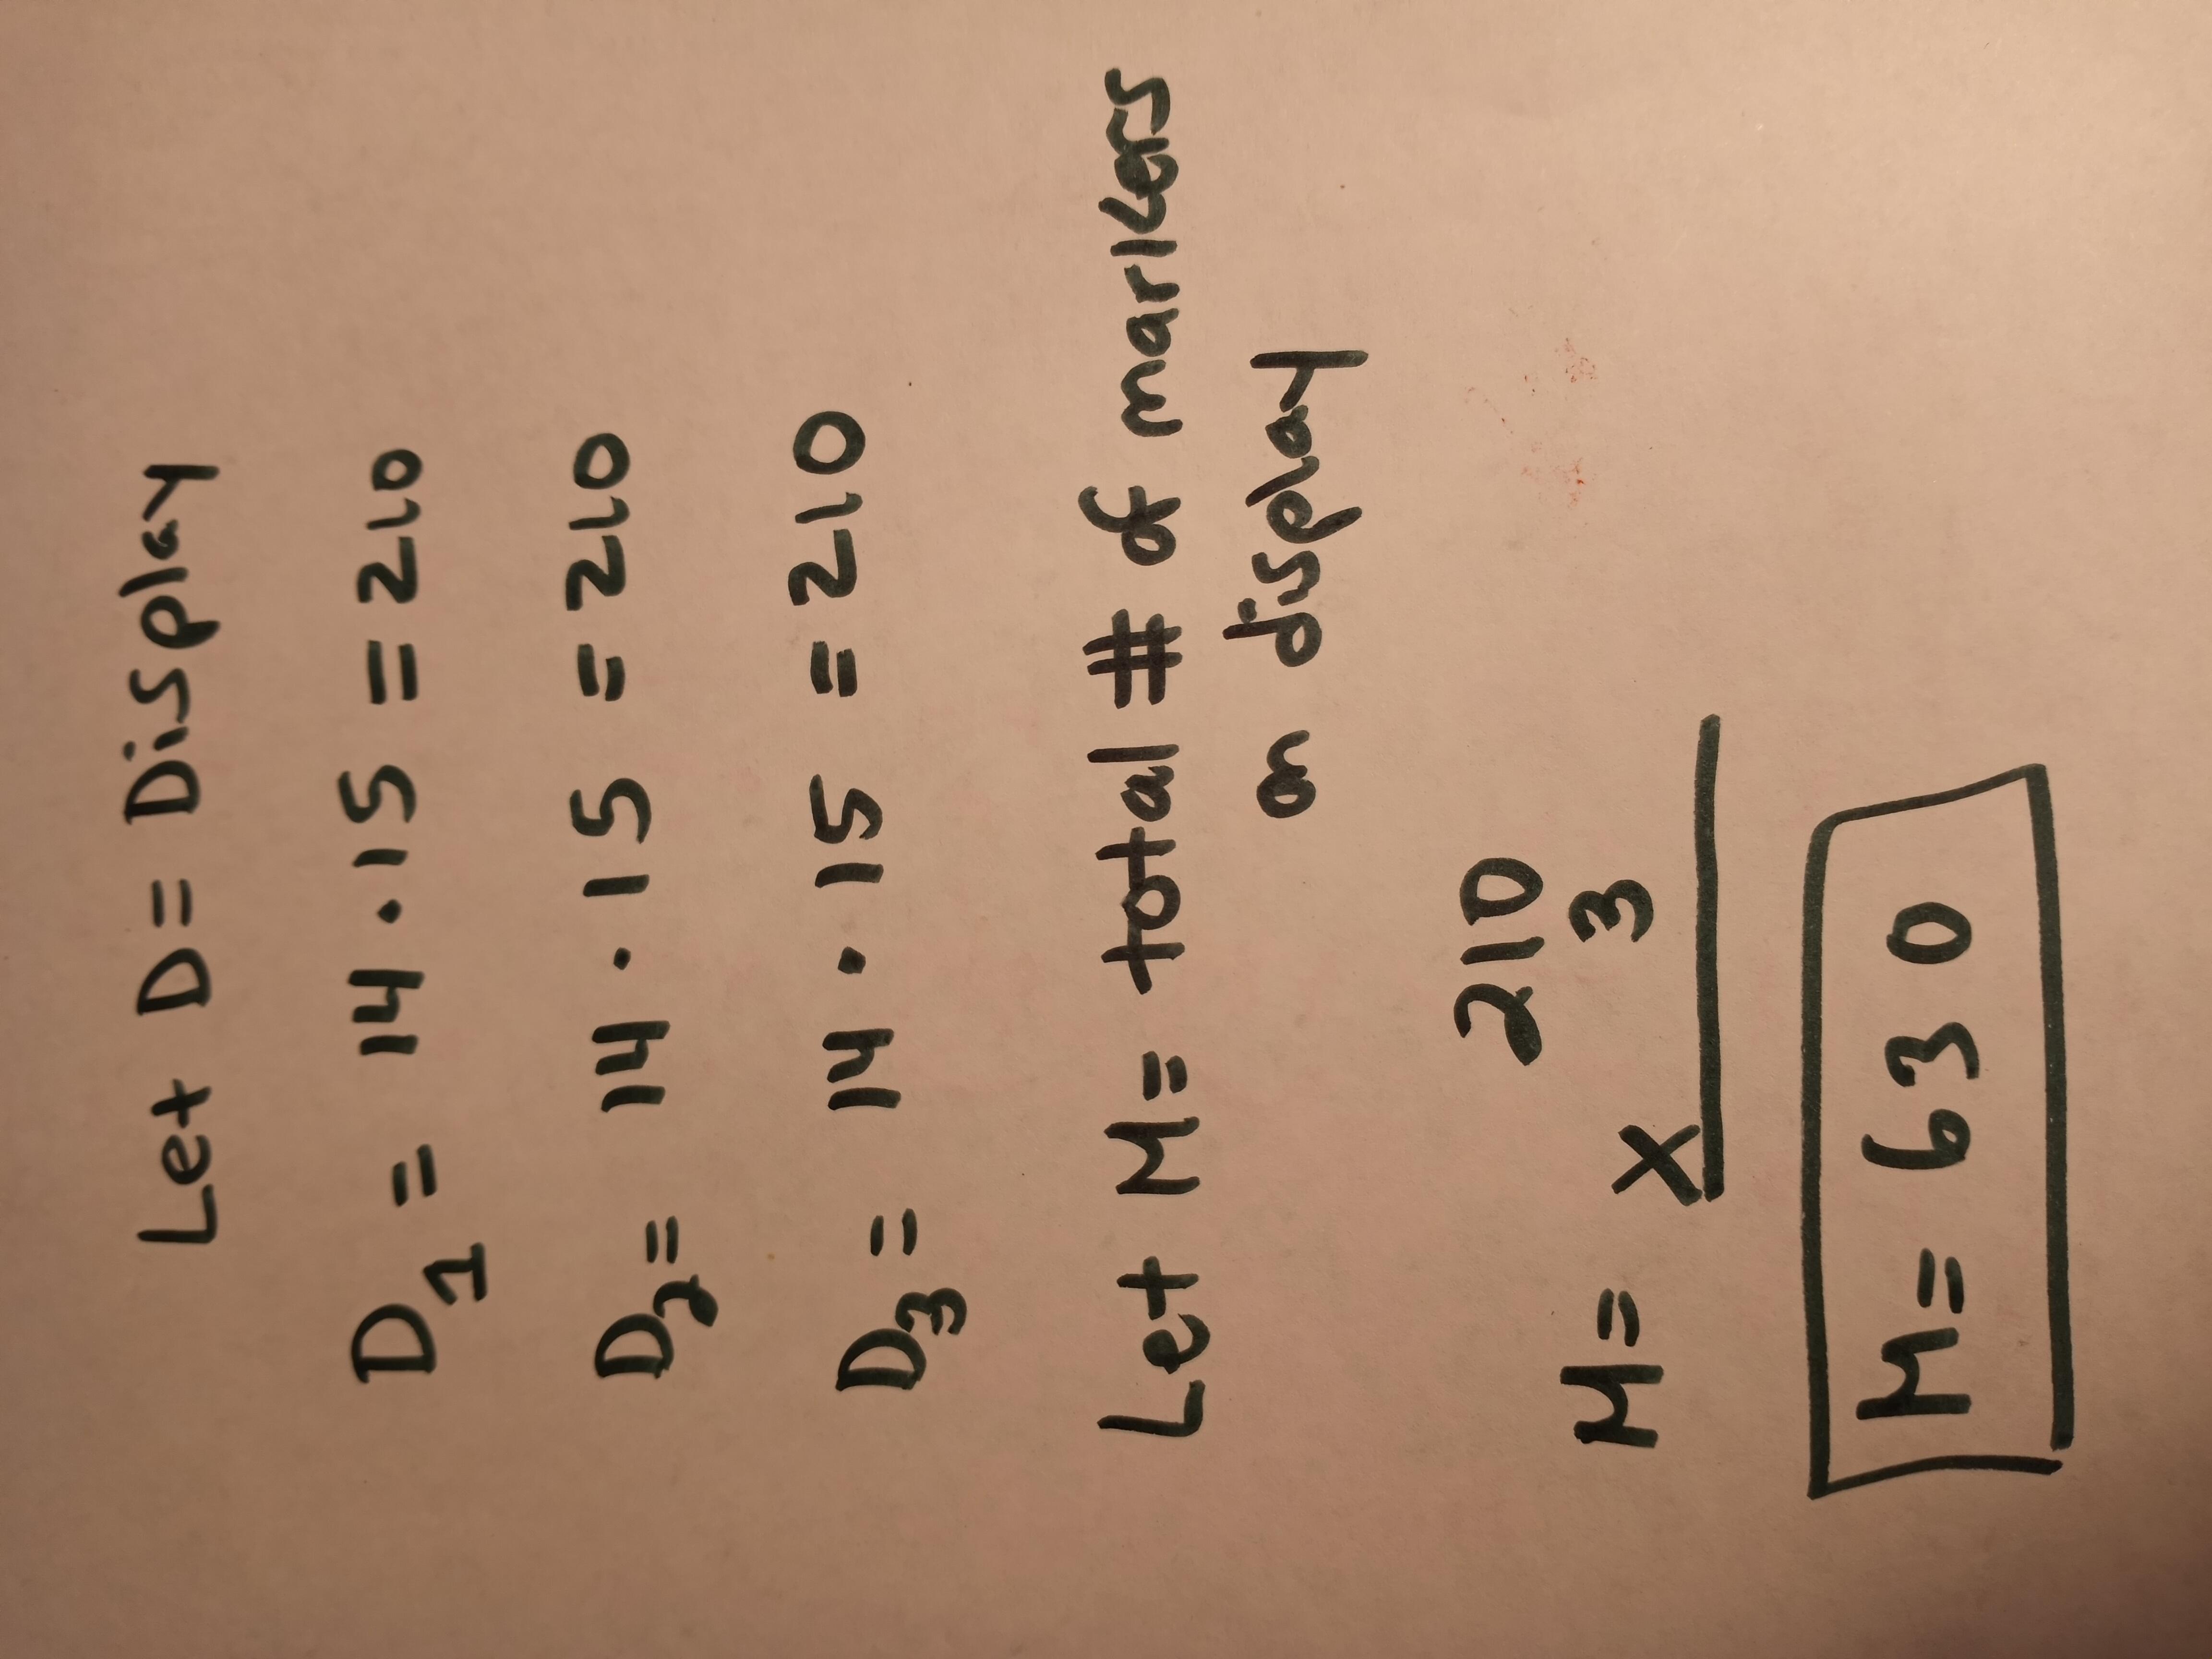 Let D = Display
D₁ = 14 · 15 = 210
D₂ = 14 · 15 = 210
D₃ = 14 · 15 = 210
Let M = total # of markers
on display
210
M = x 3
M = 630